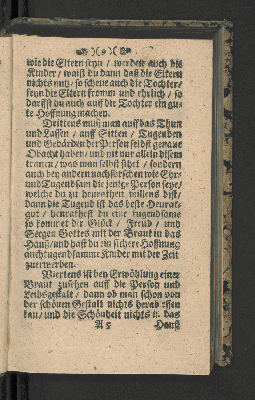 ( 9 )
wie die Eltern seyn / werden auch die
Kinder / waist du dann daß die Eltern
nichts nutz / so scheue auch die Tochter /
seyn die Eltern fromm und ehrlich / so
darffst du auch auff die Tochter ein gu-
te Hoffnung machen.
Drittens muß man auff das Thun
und Lassen / auff Sitten / Tugenden
und Gebärden der Person selbst genaue
Obacht haben / und nit nur allein disem
trauen / was man selbst sihet / sondern
auch bey andern nachforschen wie Ehr-
und Tugendsam die jenige Person seye /
welche du zu heurathen willens bist /
dann die Tugend ist das beste Heurat-
gut / heurathest du eine tugendsame
so kommet dir Glück / Freud / und
Seegen Gottes mit der Braut in das
Hauß / und hast du ein sichere Hoffnung
auch tugendsamme Kinder mit der Zeit
zuerwerben.
Viertens ist bey Erwöhlung einer
Braut zusehen auff die Person und
Leibsgestalt / dann ob man schon von
der schönen Gestalt nichts herab essen
kan / und die Schönheit nichts in das
A 5 Hauß